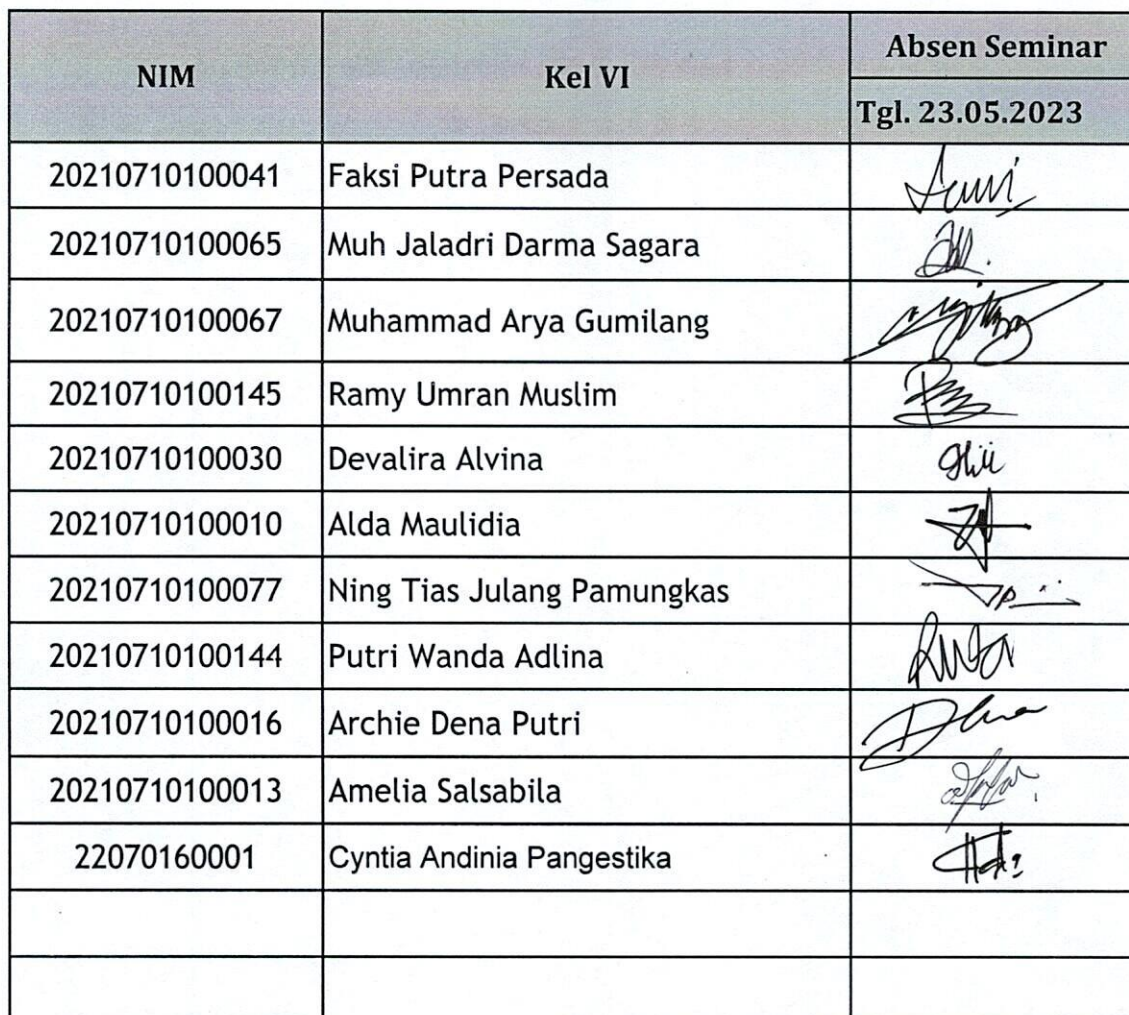 NIM Kel VI Absen Seminar
Tgl. 23.05.2023
20210710100041 Faksi Putra Persada
20210710100065 Muh Jaladri Darma Sagara
20210710100067 Muhammad Arya Gumilang
20210710100145 Ramy Umran Muslim
20210710100030 Devalira Alvina
20210710100010 Alda Maulidia
20210710100077 Ning Tias Julang Pamungkas
20210710100144 Putri Wanda Adlina
20210710100016 Archie Dena Putri
20210710100013 Amelia Salsabila
22070160001 Cyntia Andinia Pangestika